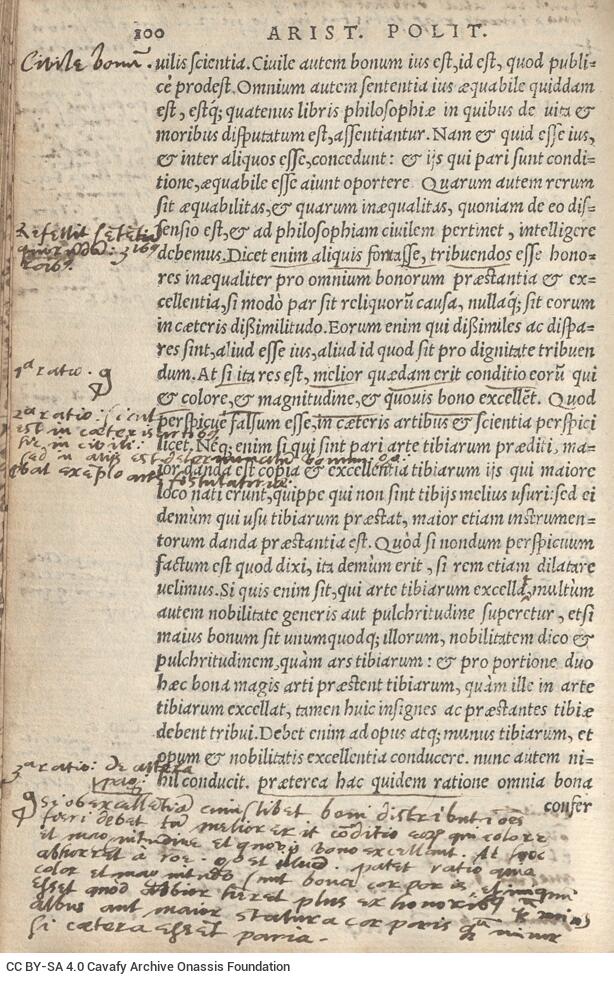 100 ARIST. POLIT.
Civile bonũ.
uilis scientia. Ciuile autem bonum ius est, id est, quod publi-
cè prodest. Omnium autem sententia ius æquabile quiddam
est, estq; quatenus libris philosophiæ in quibus de uita &
moribus disputatum est, assentiantur. Nam & quid esse ius,
& inter aliquos esse, concedunt: & ijs qui pari sunt condi-
tione, æquabile esse aiunt oportere. Quarum autem rerum
sit æquabilitas, & quarum inæqualitas, quoniam de eo dis-
sensio est, & ad philosophiam ciuilem pertinet, intelligere
debemus. Dicet enim aliquis fortasse, tribuendos esse hono-
res inæqualiter pro omnium bonorum præstantia & ex-
cellentia, si modò par sit reliquorũ causa, nullaq; sit eorum
in cæteris dißimilitudo. Eorum enim qui dißimiles ac dispa-
res sint, aliud esse ius, aliud id quod sit pro dignitate tribuen
dum. At si ita res est, melior quædam erit conditio eorũ qui
& colore, & magnitudine, & quouis bono excellẽt. Quod
perspicuè falsum esse, in cæteris artibus & scientia perspici
licet. Neq; enim si qui sint pari arte tibiarum præditi, ma-
ior danda est copia & excellentia tibiarum ijs qui maiore
loco nati erunt, quippe qui non sint tibijs melius usuri: sed ei
demùm qui usu tibiarum præstat, maior etiam instrumen-
torum danda præstantia est. Quòd si nondum perspicuum
factum est quod dixi, ita demùm erit, si rem etiam dilatare
uelimus. Si quis enim sit, qui arte tibiarum excellat, multùm
autem nobilitate generis aut pulchritudine superetur, etsi
maius bonum sit unumquodq; illorum, nobilitatem dico &
pulchritudinem, quàm ars tibiarum: & pro portione duo
hæc bona magis arti præstent tibiarum, quàm ille in arte
tibiarum excellat, tamen huic insignes ac præstantes tibiæ
debent tribui. Debet enim ad opus atq; munus tibiarum, et
opum & nobilitatis excellentia conducere. nunc autem ni-
hil conducit. præterea hac quidem ratione omnia bona
confer
1ª ratio.
2ª ratio: sicut
est in cæteris artibus
sic in civili.
3ª ratio: de
si ob excellẽtiã cuiuslibet boni distributiões
fieri debet tũ melior erit cõditio eorũ qui colore
et magnitudine et quovis bono excellunt. At hoc
abhorret a
color et magnitudo sunt bona corporis
esset quod albior fieret plus ex honoribus
albus aut maior statura corporis minor
si cætera essent paria.
CC BY-SA 4.0 Cavafy Archive Onassis Foundation